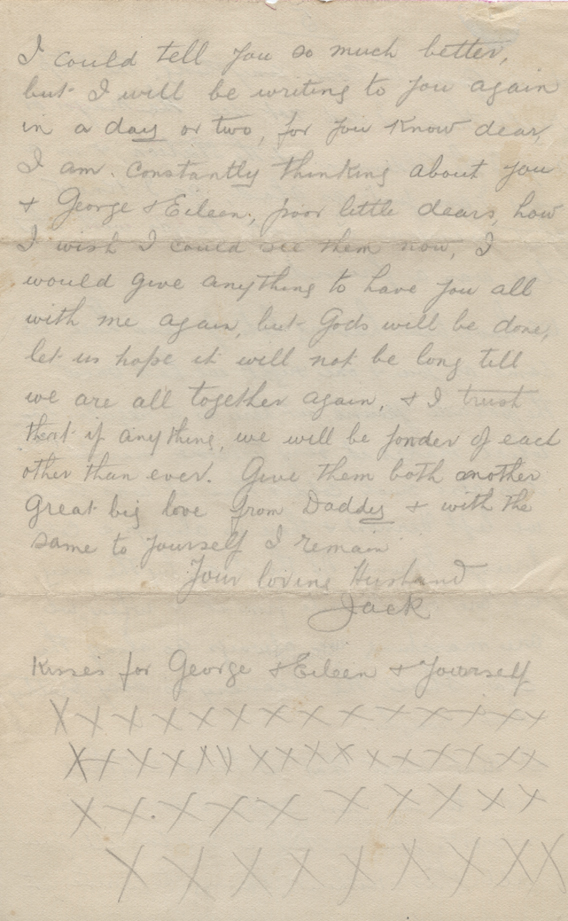 I could tell you so much better,
but I will be writing to you again
in a day or two, for you know dear,
I am constantly thinking about you
& George & Eileen, poor little dears, how
I wish I could see them now, I
would give anything to have you all
with me again, but Gods will be done,
let us hope it will not be long till
we are all together again, & I trust
that if anything, we will be fonder of each
other than ever. Give them both another
great big love from Daddy & with the
same to yourself I remain
Your loving Husband
Jack
Kisses for George & Eileen & Yourself
X X X X X X X X X X X X X
X X X X X X X X X X X X X X X
X X X X X X X X X X X
X X X X X X X X X